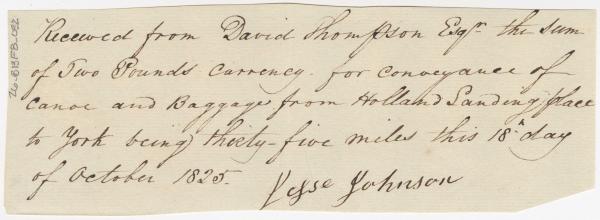 Received from David Thompson Esqr. the sum
of Two Pounds currency. for conveyance of
canoe and Baggage from Holland Landing place
to York being thirty-five miles this 18th day
of October 1825.
Jesse Johnson